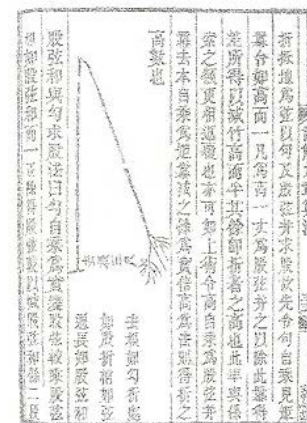 折抵地為弦以勾及股弦并求股故先令勾自乘見矩
冪令如高而一凡為高一丈為股弦并之以除此冪得
差所得以減竹高而半其餘即折者之高也此率與係
索之類更相返覆也亦可如上術令高自乘為股弦并
冪去本自乘為矩冪減之餘為實倍高為法則得折之
高數也
去根如勾折處
如股折梢如弦
總長如股弦和
去根三尺
股弦和與勾求股法曰勾自乘為實變股弦較乘股弦
和如股弦和而一 正除得股弦較以減股弦和餘二段